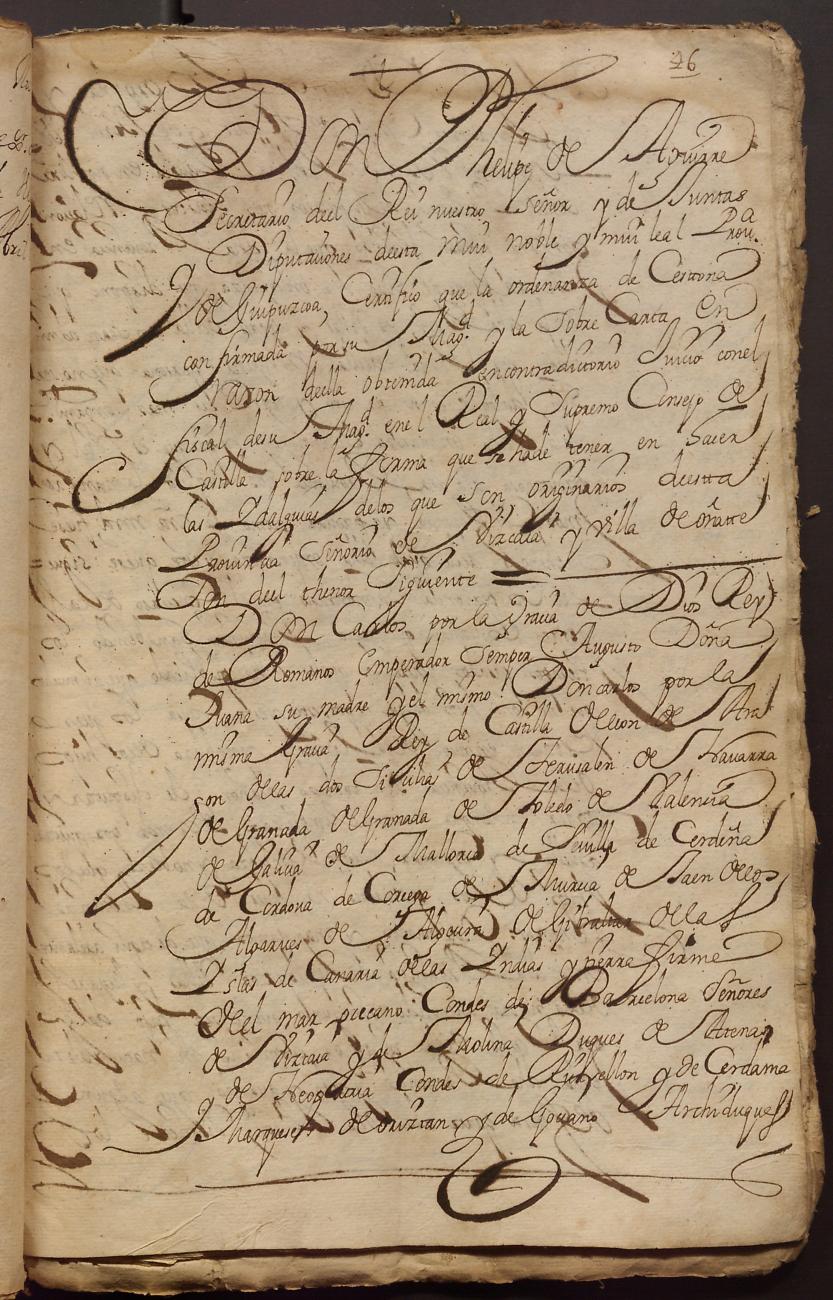 26
Don Phelipe de Aguirre
Secretario del Rei nuestro señor y de Juntas
y Diputaciones deesta mui noble y mui leal Prou.a
de Guipuzcoa, Certifico que la ordenanza de Cestona
confirmada por su Mag.d y la Sobre Carta En
razon della obtenida encontradictorio Juicio conel
fiscal desu Mag.d enel Real y Supremo Consejo de
Castilla sobre la forma que se hade tener en hacer
las Idalguias delos que son originarios deesta
Prouincia Señorio de Vizcaia y villa de oñate
Son del thenor Siguiente =
Don Carlos por la gracia de Dios Rey
de Romanos Emperador Semper Augusto Doña
Juana su madre y el mismo Don carlos por la
misma gracia Rey de Castilla de Leon de Ara
gon de las dos Sicilias de Jerusalen de Nauarra
de Granada de Granada de Toledo de Valencia
de Galicia de Mallorca de Seuilla de Cerdeña
de Cordoua de Corcega de Murcia de Jaen de los
Algarues de Algecira de Gibraltar de las
Islas de Canaria de las Indias y tierra firme
del mar occeano Condes de Barcelona Señores
de Vizcaia y de Molina Duques de Atenas
y de Neopatria Condes de Ruisellon y de Cerdania
Marqueses de oriztan y de Gociano Archiduques